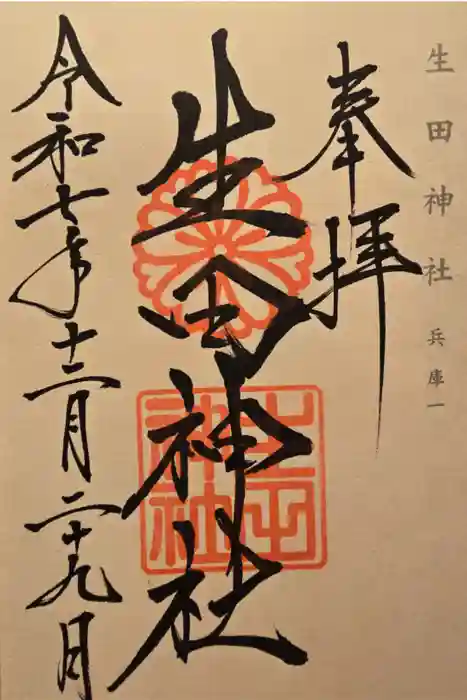 生田神社 兵庫一
奉拝
生田神社
令和七年十二月二十九日
生田
神社